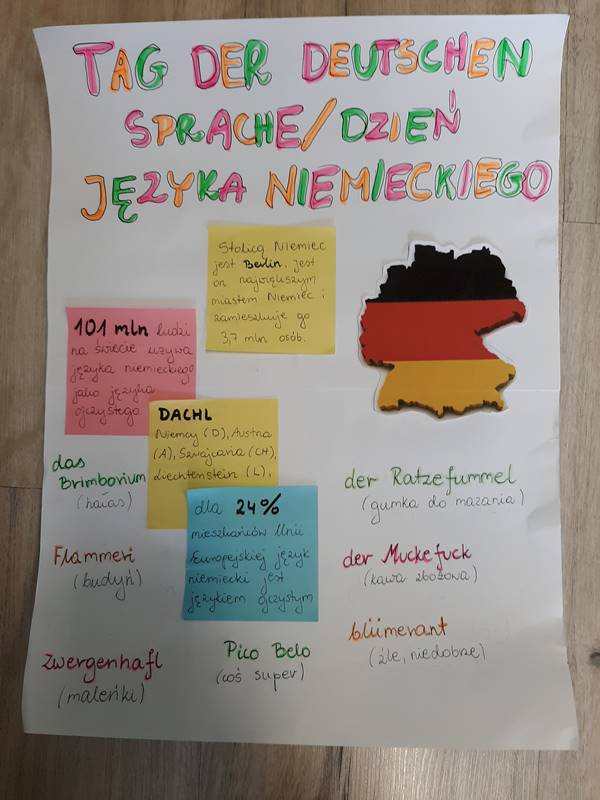 TAG DER DEUTSCHEN
SPRACHE/DZIEŃ
JĘZYKA NIEMIECKIEGO
Stolicą Niemiec
jest Berlin. Jest
on największym
miastem Niemiec i
zamieszkuje go
3,7 mln osób.
101 mln ludzi
na świecie używa
języka niemieckiego
jako języka
ojczystego.
DACHL
Niemcy (D), Austria
(A), Szwajcaria (CH),
Liechtenstein (L),
dla 24%
mieszkańców Unii
Europejskiej język
niemiecki jest
językiem ojczystym
das
Brimborium
(hałas)
Flammeri
(budyń)
Zwergenhaft
(maleńki)
Pico Belo
(coś super)
der Ratzefummel
(gumka do mazania)
der Muckefuck
(kawa zbożowa)
blümerant
(źle, niedobrze)